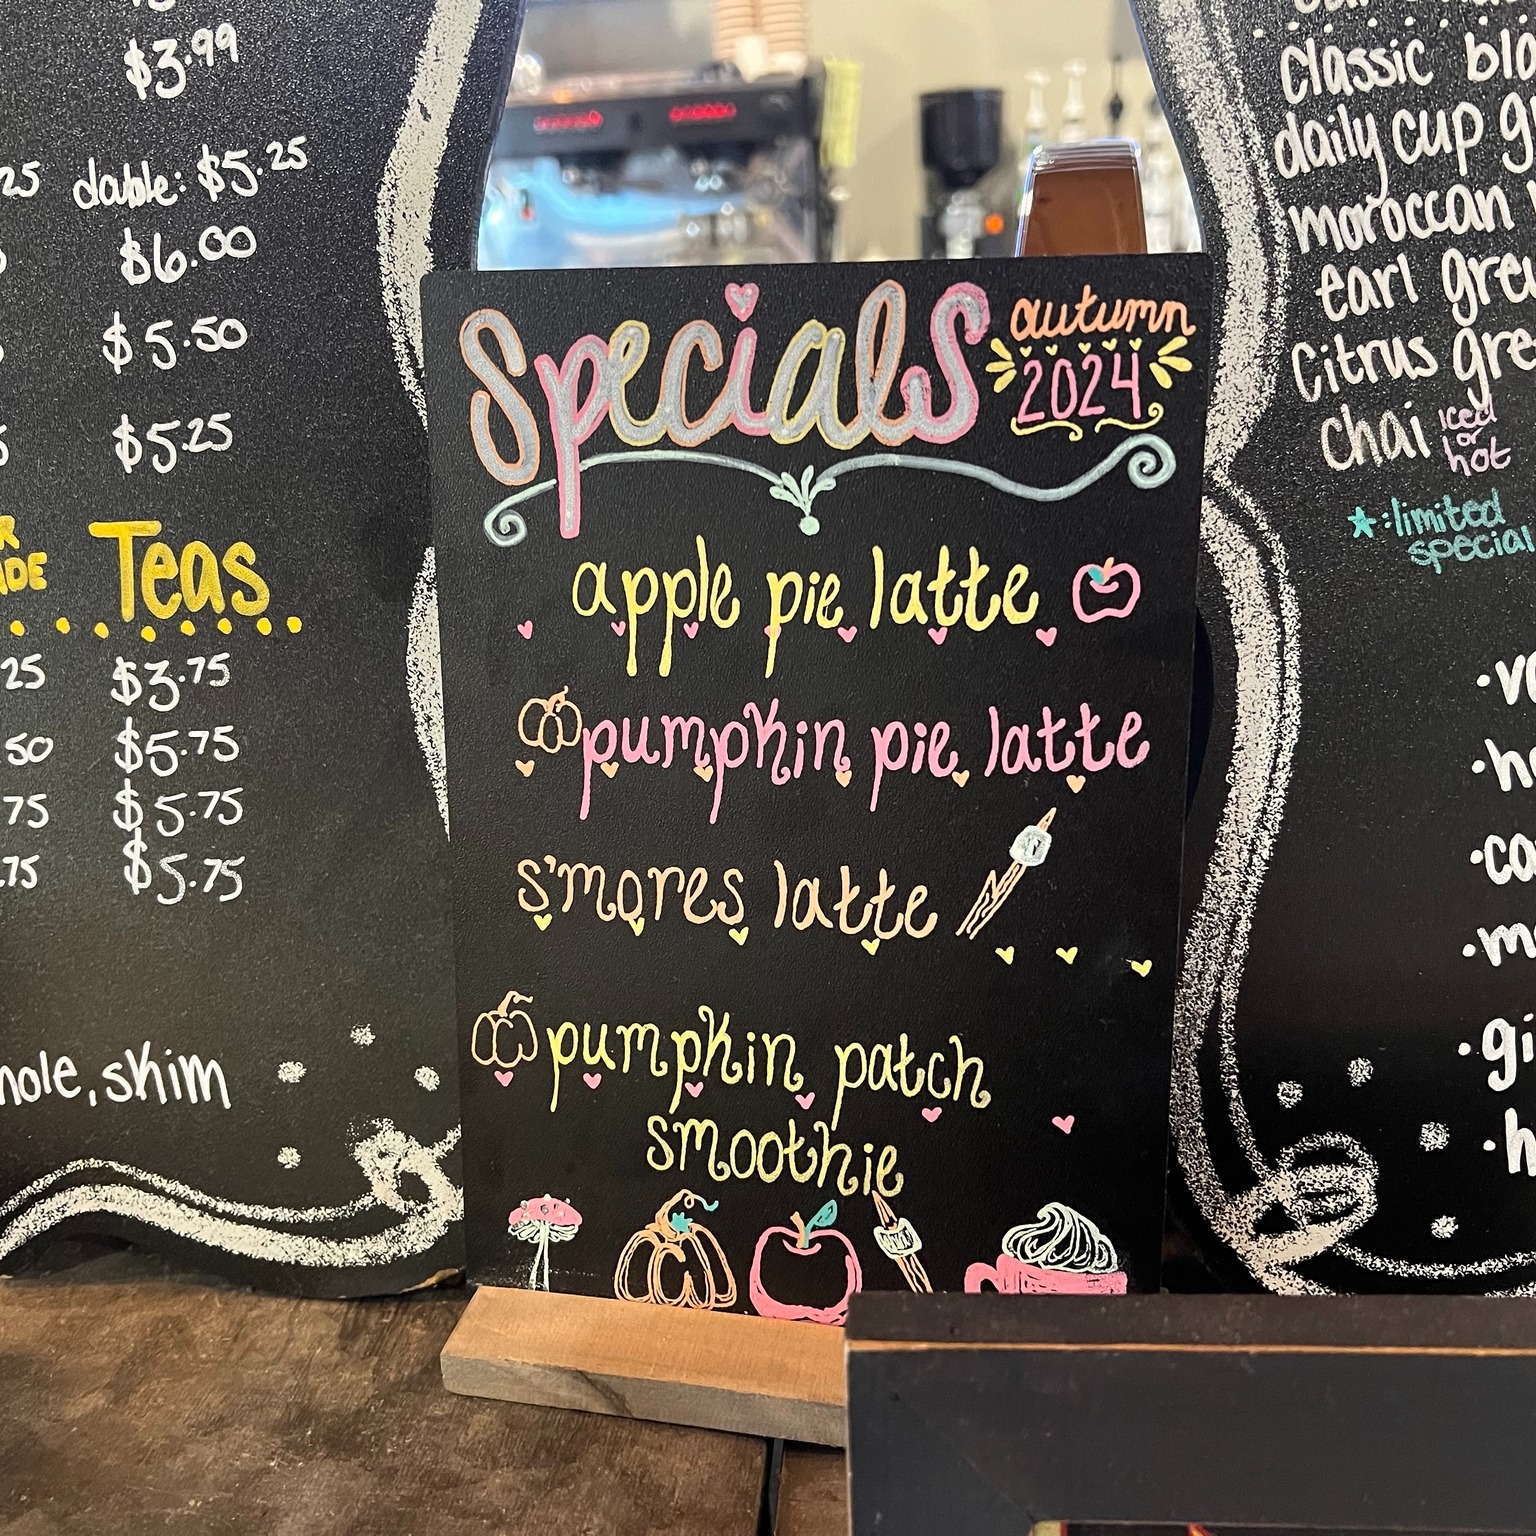 $3.99
double: $5.25
$6.00
$5.50
$5.25
Teas
$3.75
.50 $5.75
.75 $5.75
.75 $5.75
skim
Specials
autumn
2024
apple pie latte
pumpkin pie latte
s'mores latte
pumpkin patch
smoothie
classic
daily cup
moroccan
earl
citrus
chai iced
or
hot
★:limited
special